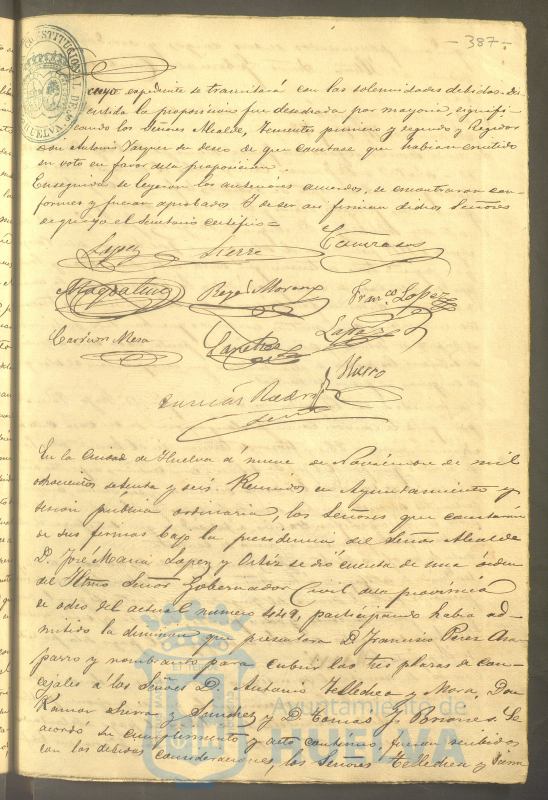 - 387 -
cuyo expediente se tramitará con las solemnidades debidas. Dis-
cutida la proposicion fue desechada por mayoria, signifi-
cando los Señores Alcalde, Tenientes primero y segundo y Regidor
Don Antonio Vazquez su deseo de que constase que habian emitido
su voto en favor de la proposicion.
Enseguida se leyeron los anteriores acuerdos, se encontraron con-
formes y fueron aprobados. Y de ser asi firman dichos Señores
de que yo el Secretario certifico =
Lopez Sierra
Magdaleno Franco Lopez
Carrion Mesa Lopez
Hierro
En la Ciudad de Huelva á nueve de Noviembre de mil
ochocientos setenta y seis Reunidos en Ayuntamiento y
sesion pública ordinaria, los Señores que constarán
de sus firmas bajo la presidencia del Señor Alcalde
D. José Maria Lopez y Ortiz se dió cuenta de una órden
del Iltmo Señor Gobernador Civil de la provincia
de ocho del actual número 449, participando habia ad-
mitido la dimision que presentara D. Francisco Perez
y nombrado para cubrir las tres plazas de con-
cejales á los Señores D. Antonio Telledica y Mora, Don
Ramon Sierra y Sanchez y D. Tomas Se
acordó su cumplimiento y acto continuo, fueron recibidos
con las debidas consideraciones, los Señores Telledica y Sierra
Ayuntamiento de
HUELVA